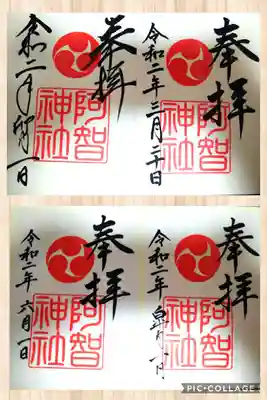 奉拝
阿智
神社
令和二年三月二十日
奉拝
阿智
神社
令和二年卯月一日
奉拝
阿智
神社
令和二年
奉拝
阿智
神社
令和二年六月一日
PIC•COLLAGE